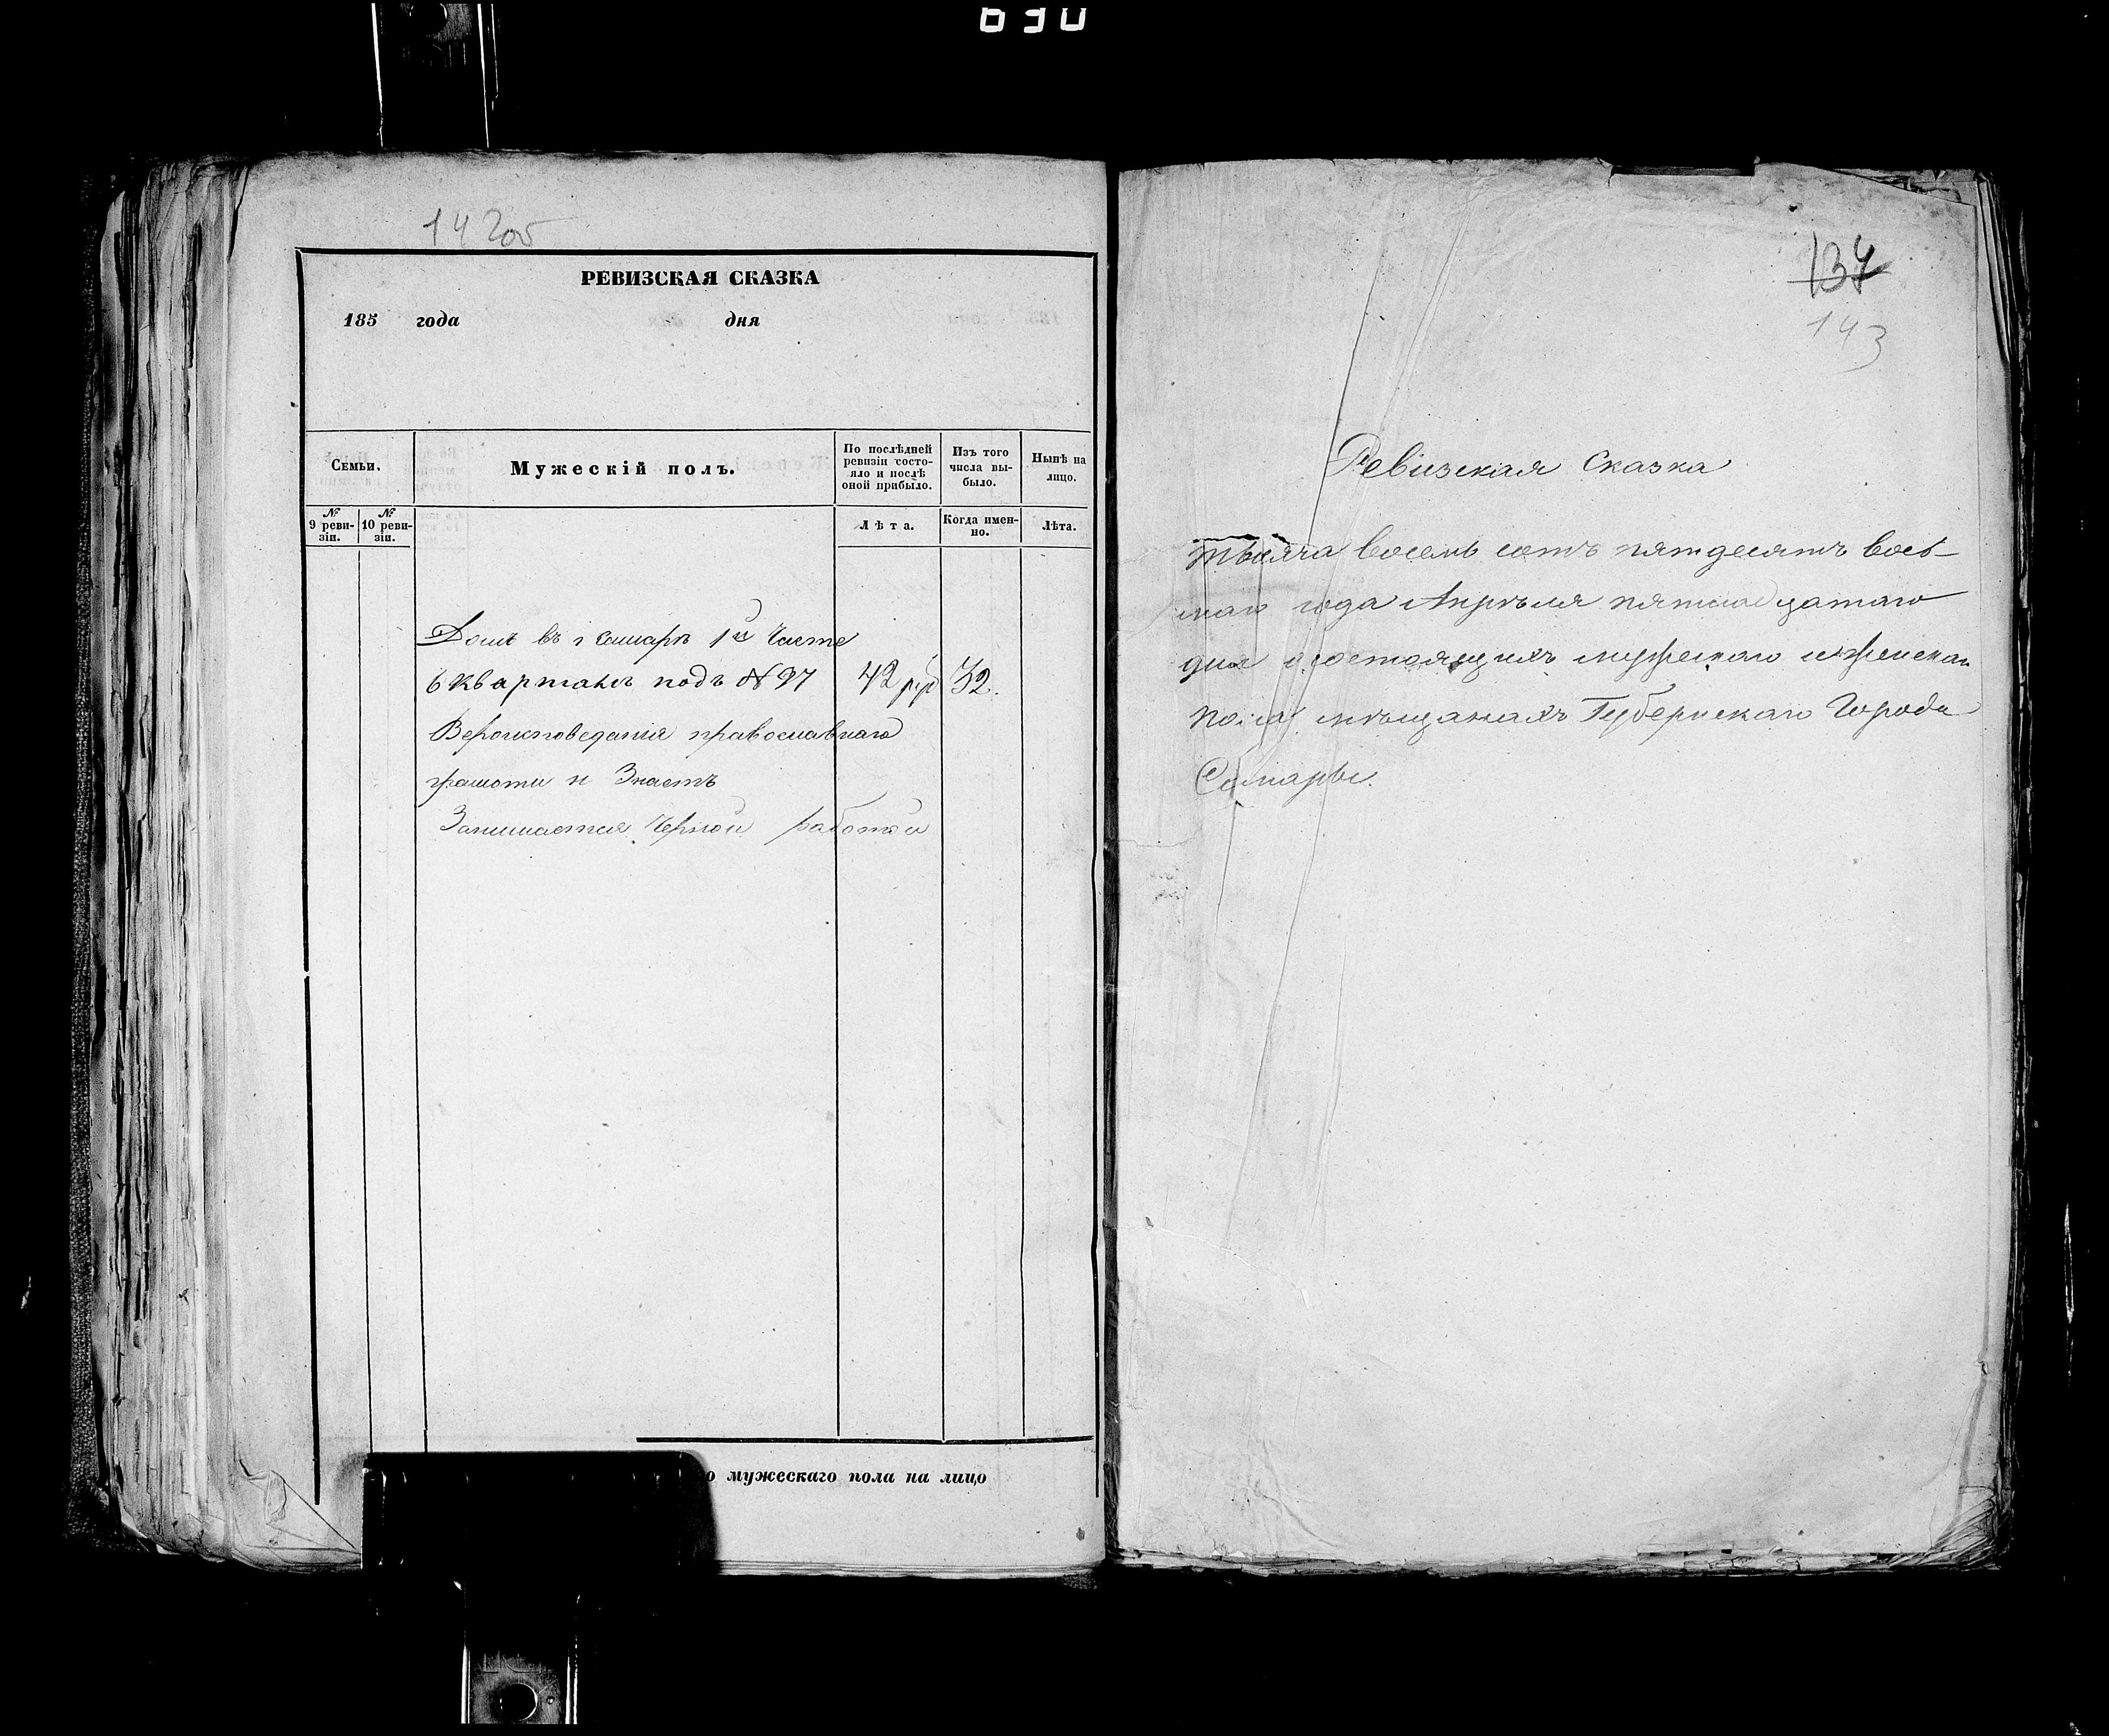 630
14 2об
РЕВИЗСКАЯ СКАЗКА
185 года дня
Семьи.
Мужескій полъ.
По послѣдней ревизіи состояло и послѣ оной прибыло.
Изъ того числа выбыло.
Нынѣ на лицо.
№ 9 ревизіи.
№ 10 ревизіи.
Лѣта.
Когда именно.
Лѣта.
Домъ въ г Самарѣ 1й Части
6 квартали подъ № 97 42 руб 32.
Вероисповедания православнаго
грамоти н Знаетъ
Занимается черной работой
мужескаго пола на лицо
134
143
Ревизская Сказка
тысяча восемь сотъ пятдесятъ вось-
маго года Апрѣля пятнадцатаго
дня о состоящихъ мужескаго и женскаго
пола мѣщанахъ Губернскаго Города
Самары.